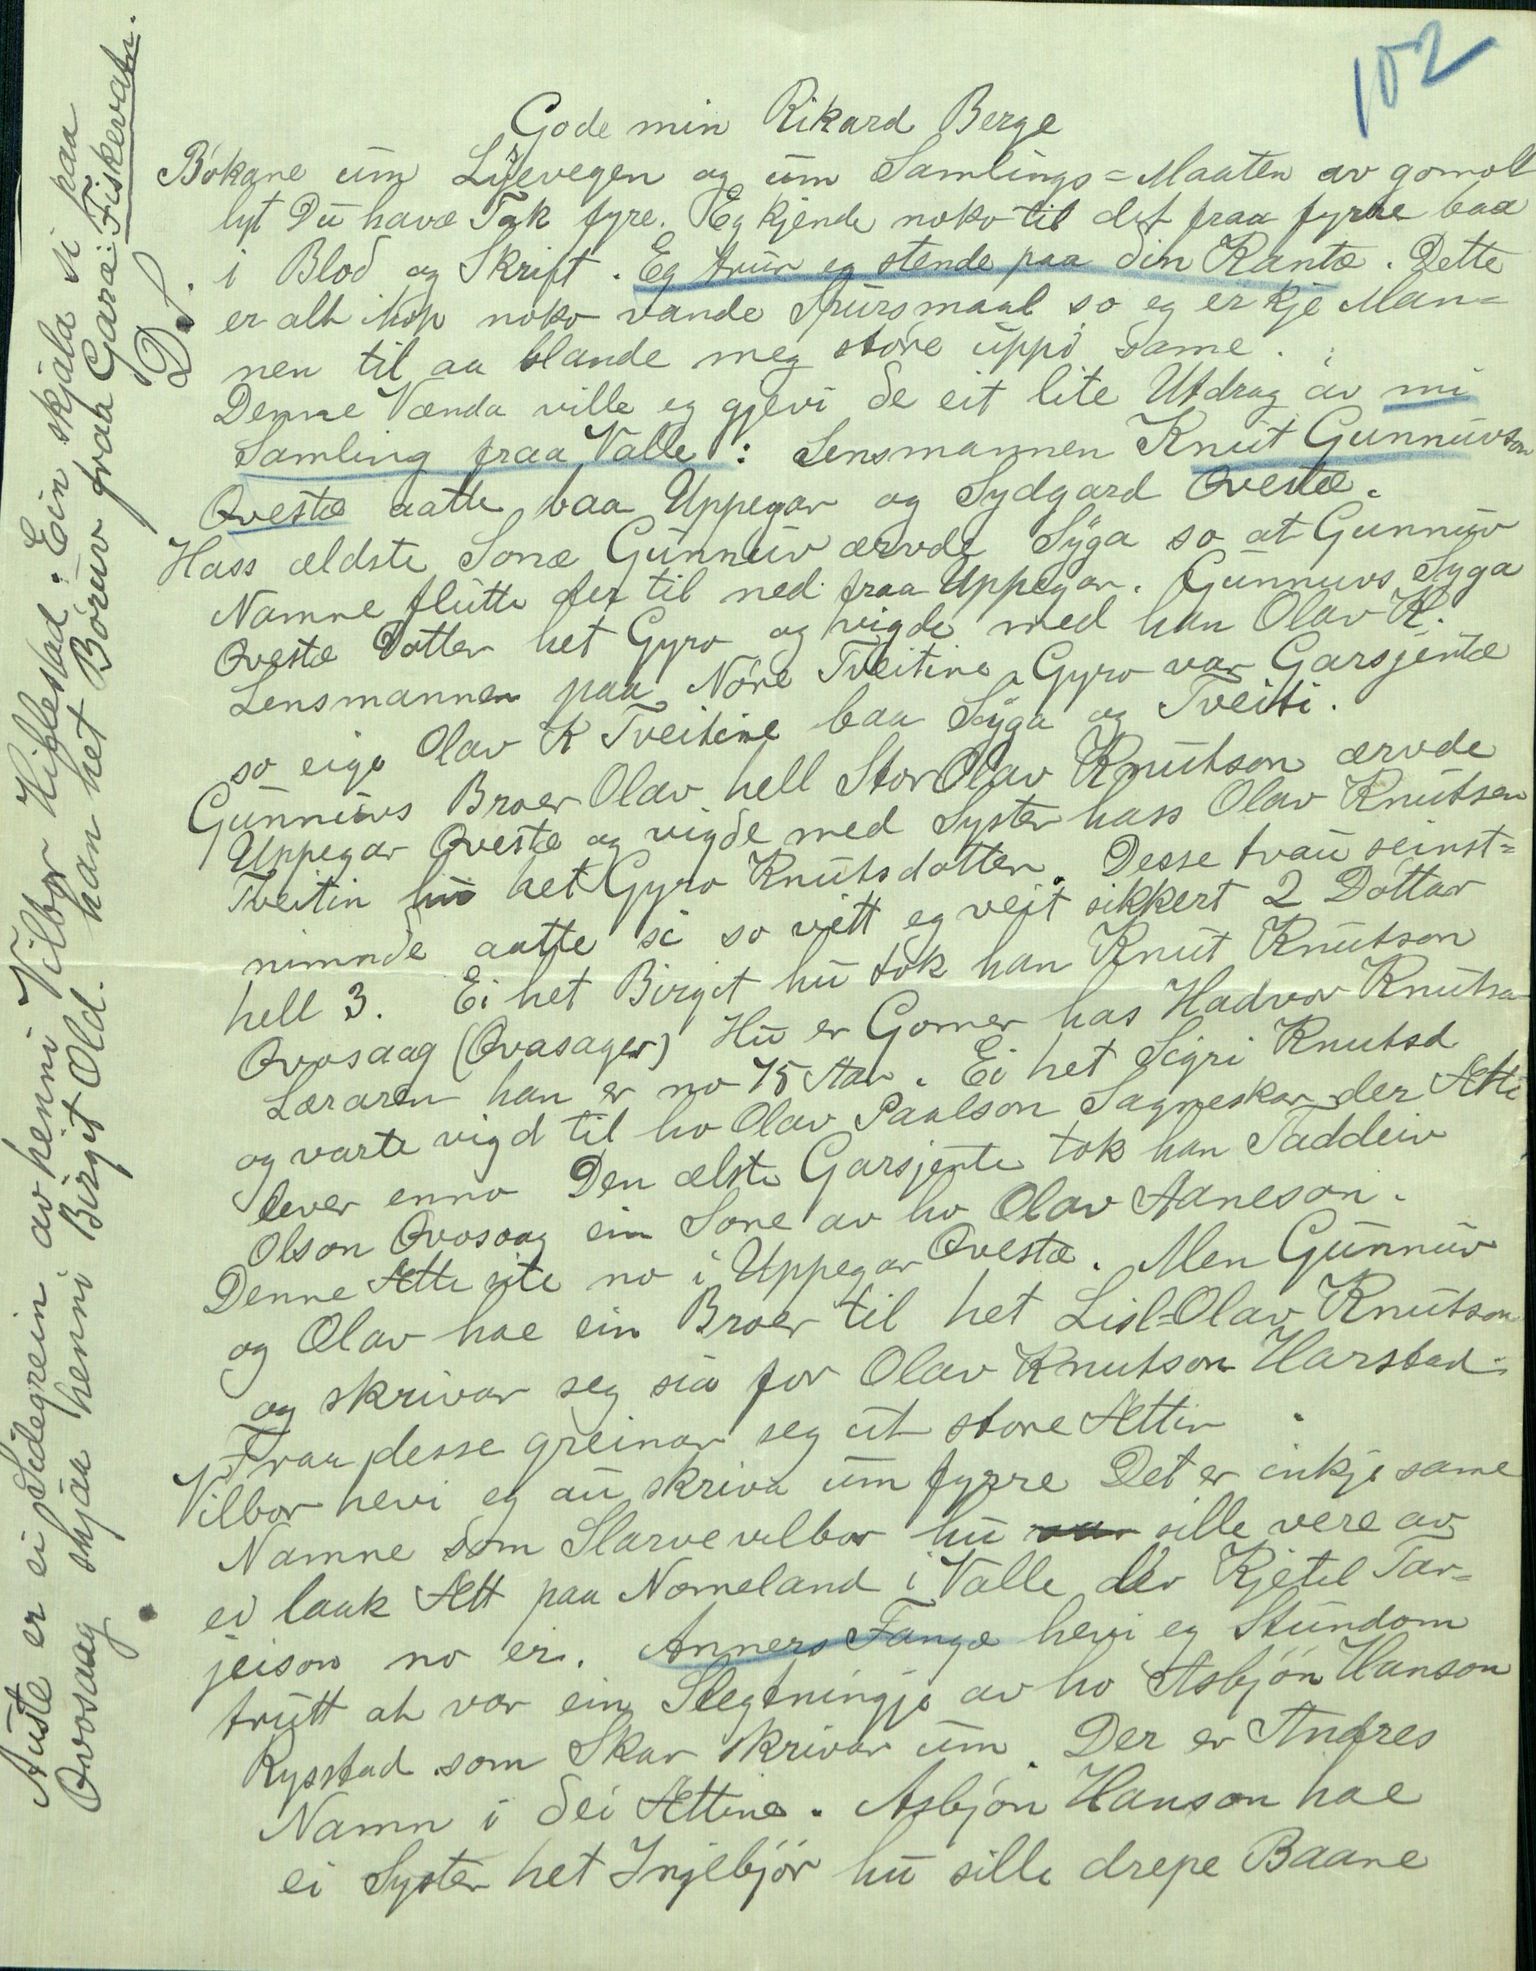 102
Gode min Rikard Berge
Bökane um Lijevegen og um Samlings=Maaten av gomol
lyt Du havæ Tak fyre. Eg kjende noko til det fraa fyrre baa
i Blod og Skrift. Eg trur eg stende paa din Kantæ. Dette
er alt ihop noko vande Spursmaal so eg er kje Man=
nen til aa blande meg störe uppi same.
Denne Vænda ville eg gjevi de eit lite Utdrag av mi
Samling fraa Valle: Lensmannen Knut Gunnuvson
Qvestæ aatte baa Uppegar og Sydgard Qvestæ.
Hass ældste Sonæ Gunnuv ærvde Syga so at Gunnuv
Namne flutte der til ned fraa Uppegar. Gunnuvs Syga
Qvestæ Dotter het Gyro og vigde med han Olav K.
Lensmannen paa Nöre Tveitine Gyro var Garsjentæ
so eige Olav K Tveitine baa Syga og Tveiti.
Gunnuvs Broer Olav hell StorOlav Knutson ærvde
Uppegar Qvestæ og vigde med Syster hass Olav Knutsen
Tveitin hu het Gyro Knutsdotter. Desse tvau seinst=
nimnde aatte si so vitt eg veit sikkert 2 Döttar
hell 3. Ei het Birgit hu tok han Knut Knutson
Qvosaag (Qvasager) Hu er Gomer has Hadvor Knutsa
Læraren han er no 75 Aar. Ei het Sigri Knutsd
og varte vigd til ho Olav Paalson Sagneskar der Ætti
lever enno Den ælste Garsjente tok han Taddeiv
Olson Qvosaag ein Sone av ho Olav Aaneson.
Denne Ætte site no i Uppegar Qvestæ. Men Gunnuv
og Olav hae ein Broer til het Lisl-Olav Knutson
og skrivar seg sia for Olav Knutson Harstad
Fraa desse greinar seg ut store Ættir
Vilbor hevi eg au skriva um fyrre Det er inkje same
Namne som Slarvevilbor hu sille vere av
ei laak Ætt paa Nomeland i Valle der Kjetil Tar=
jeison no er. Anners Fange hevi eg Stundom
trutt at var ein Slegtningje av ho Asbjön Hanson
Rysstad som Skar skrivar um. Der er Andres
Namn i dei Ættine. Asbjön Hanson hae
ei Syster het Ingebjör hu sille drepe Baane
Auste er ei Sidegrein av henni Vilbor Hiflestad: Ein skjala si paa
Qvosaag skjaa henni Birgit Old. han het Böruv fraa Garæ: Fiskevatn.
D. S.